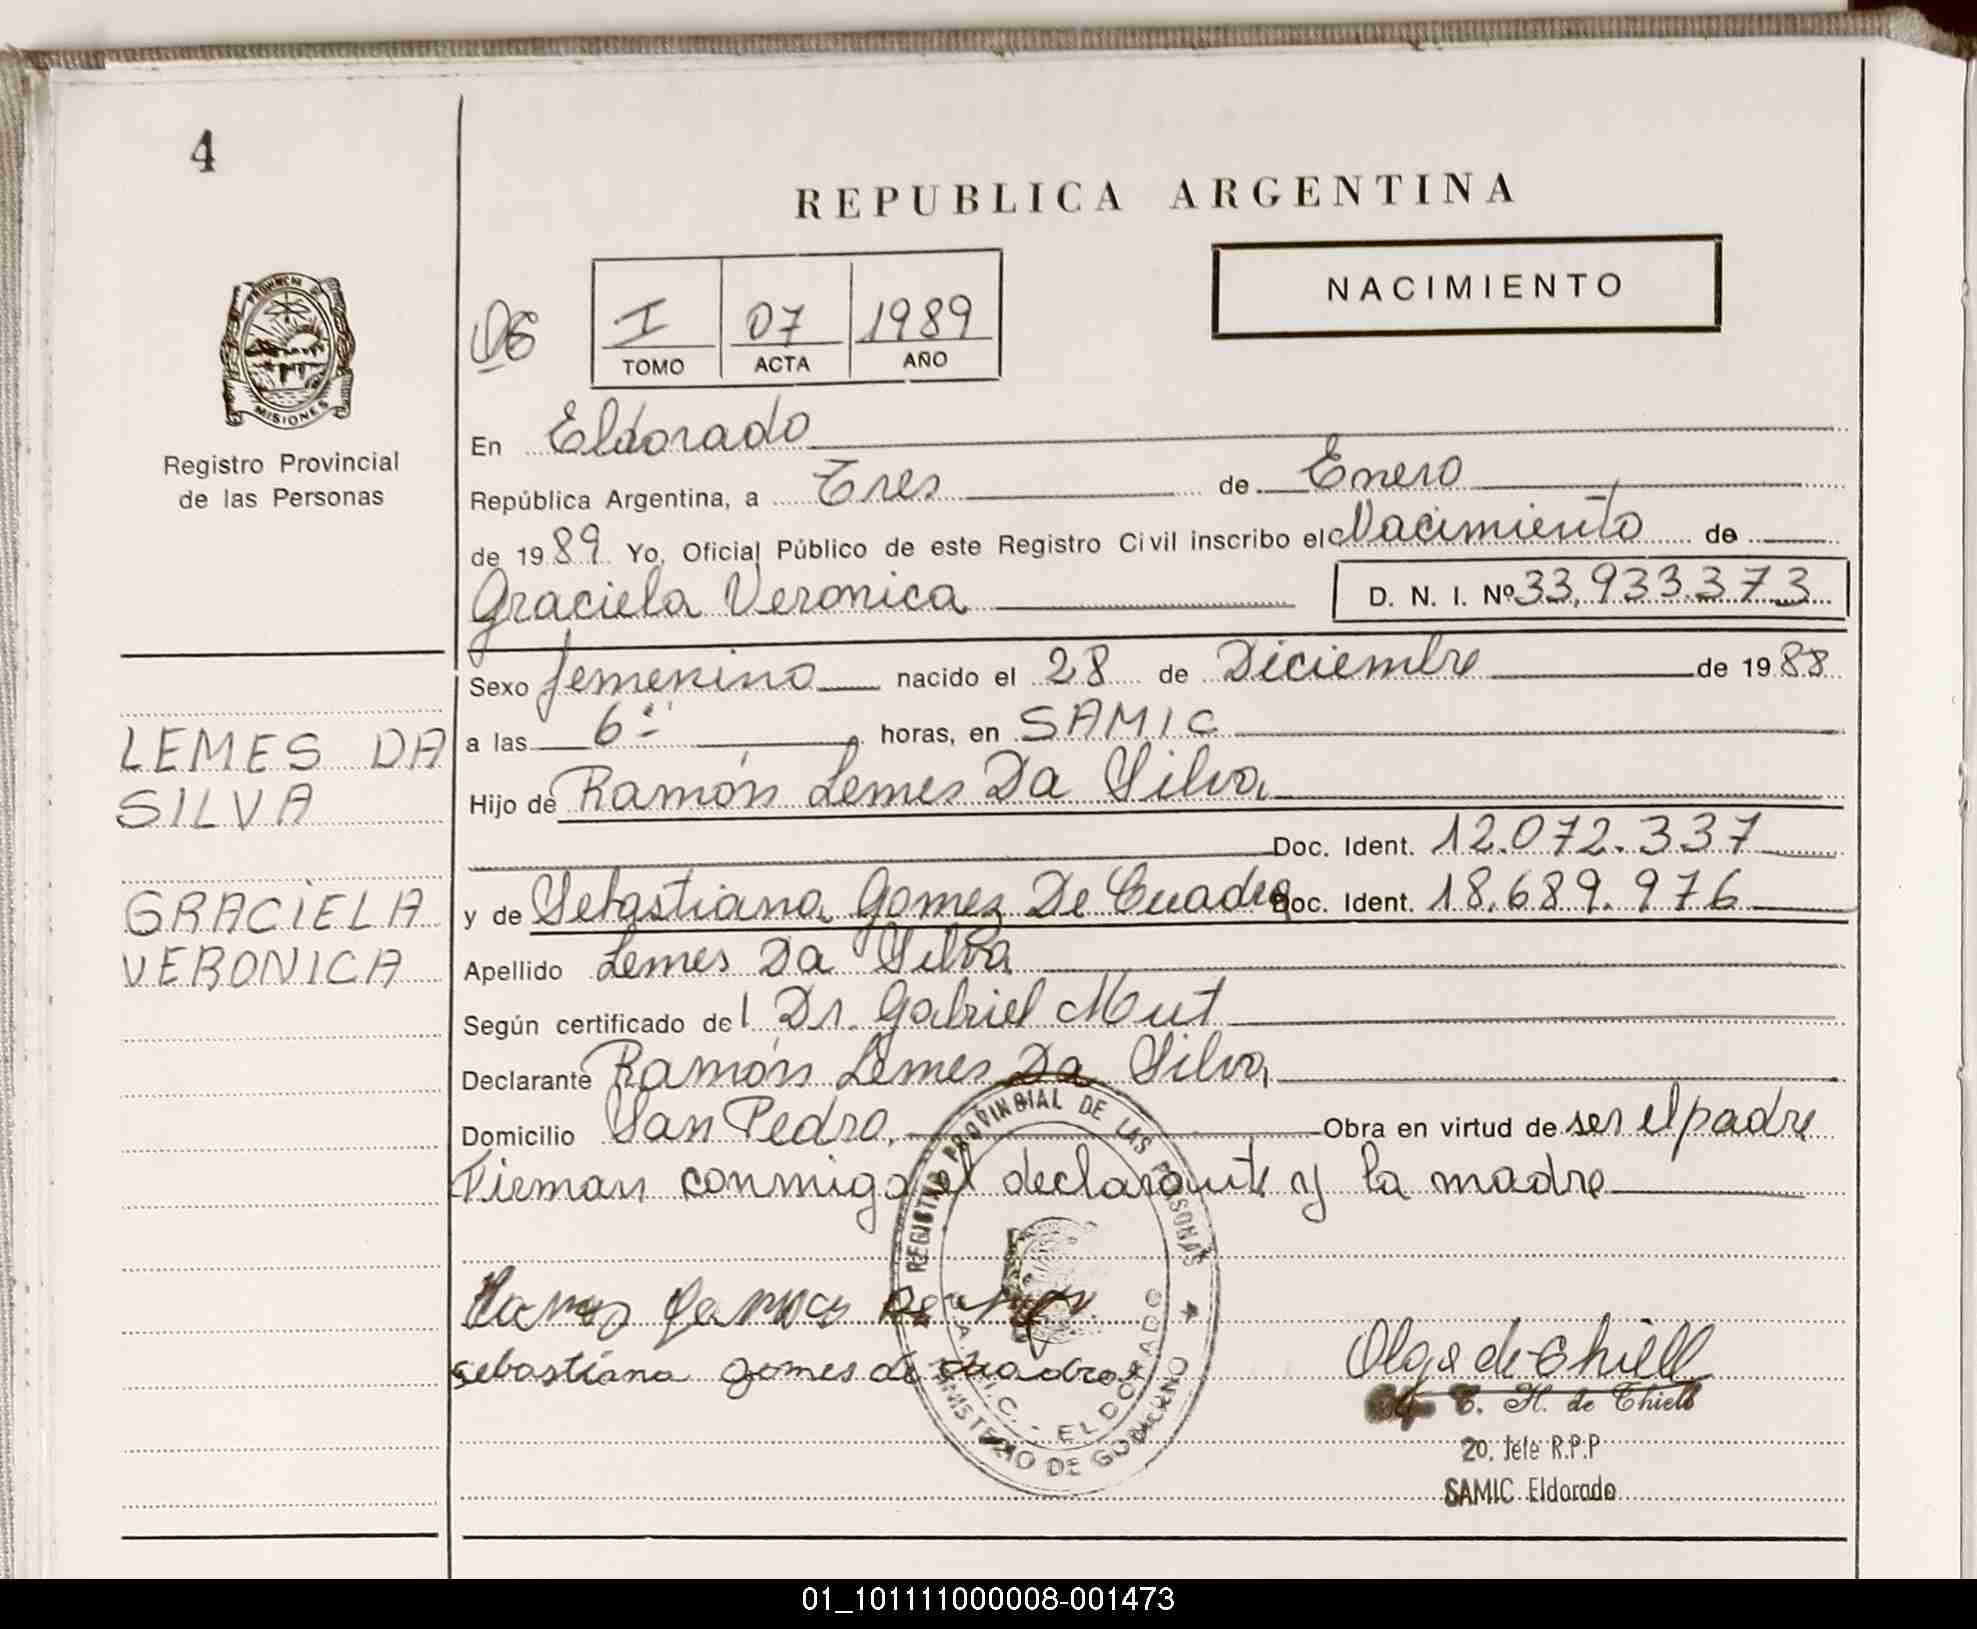 4
REPUBLICA ARGENTINA
NACIMIENTO
06
I 07 1989
TOMO ACTA AÑO
PROVINCIA DE
MISIONES
Registro Provincial
de las Personas
En Eldorado
República Argentina, a Tres de Enero
de 1989 Yo, Oficial Público de este Registro Civil inscribo el Nacimiento de
Graciela Veronica D. N. I. Nº 33.933.373
Sexo femenino nacido el 28 de Diciembre de 1988
a las 6 horas, en SAMIC
Hijo de Ramón Lemes Da Silva
Doc. Ident. 12.072.337
y de Sebastiana Gomez De Cuadra Doc. Ident. 18.689.976
Apellido Lemes Da Silva
Según certificado del Dr. Gabriel Mut
Declarante Ramón Lemes Da Silva
Domicilio San Pedro, Obra en virtud de ser el padre
Firman conmigo el declarante y la madre
LEMES DA
SILVA
GRACIELA
VERONICA
REGISTRO PROVINCIAL DE LAS PERSONAS
MINISTERIO DE GOBIERNO
S.A.M.I.C. - ELDORADO
sebastiana gomes de cuadro
Olga de Thiell
C. H. de Thiell
20. Jefe R.P.P
SAMIC Eldorado
01_101111000008-001473